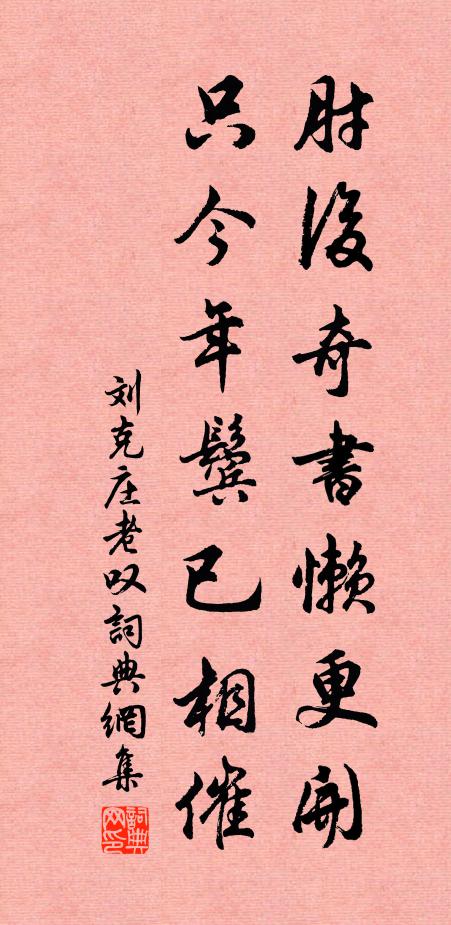 肘後奇書懶更開
只今年鬢已相催
刘克庄老叹詞典網集
詞典网印